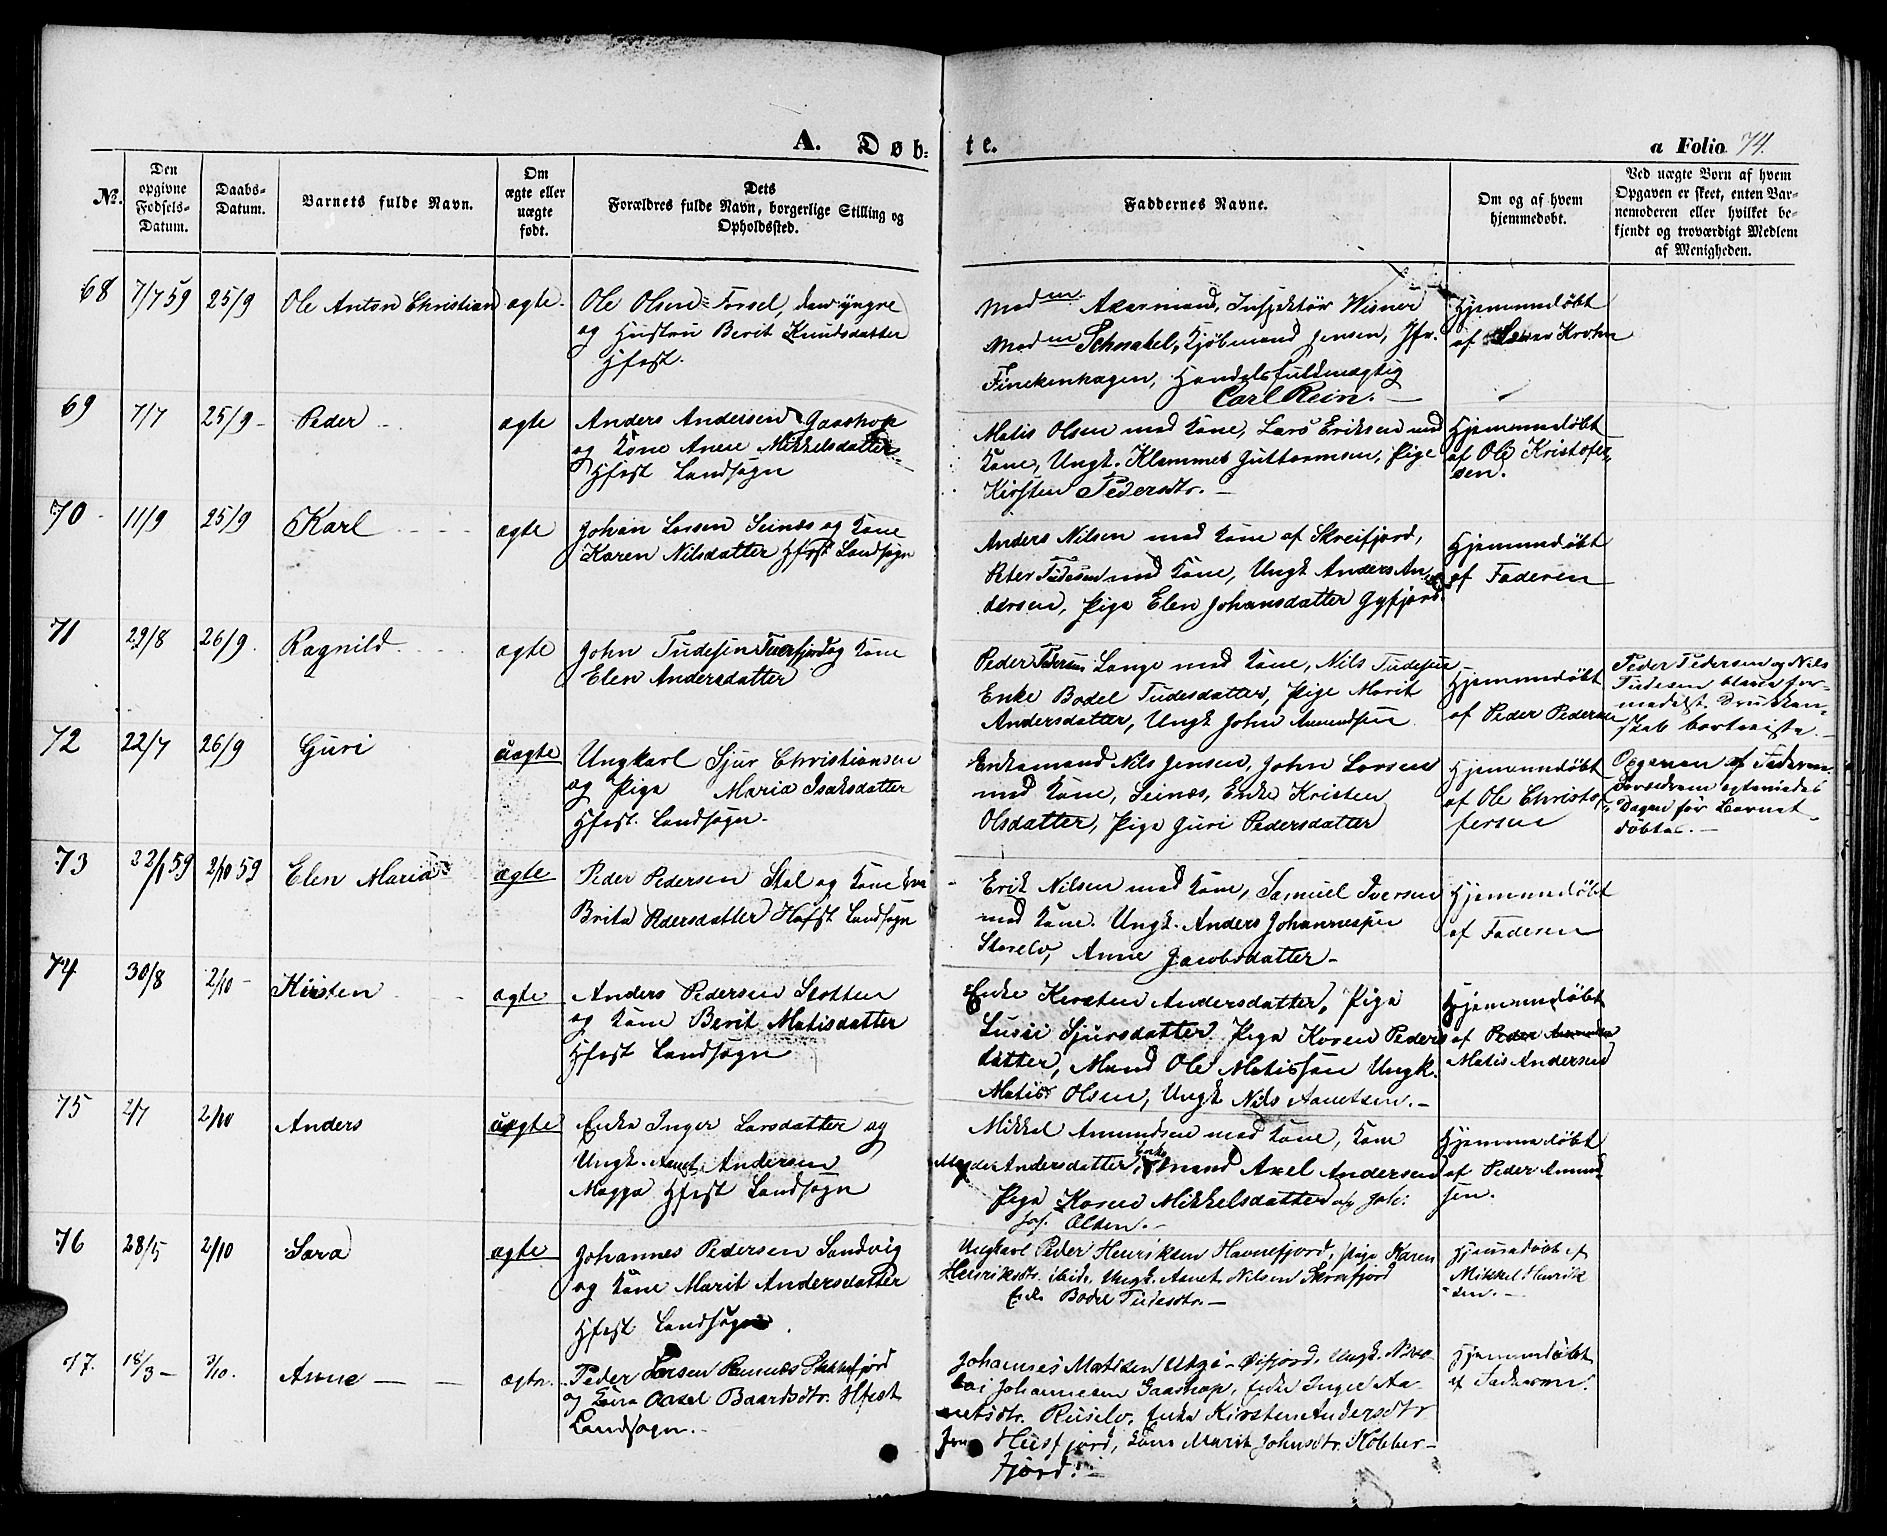 A. Døb:
te.
a Folio 74.
No.
Den opgivne Fødsels-Datum.
Daabs-Datum.
Barnets fulde Navn.
Om ægte eller uægte født.
Dets Forældres fulde Navn, borgerlige Stilling og Opholdssted.
Faddernes Navne.
Om og af hvem hjemmedøbt.
Ved uægte Børn af hvem Opgaven er skeet, enten Barnemoderen eller hvilket bekjendt og troværdigt Medlem af Menigheden.
68 7/7 59 25/9 Ole Anton Christian ægte.
Ole Olsen Forsel, den yngre
og Hustru Berit Knudsdatter
Hfest.
Madm Akermand, Inspektør Wisner
Madm Schnakel, Kjøbmand Jensen, Jfr.
Finckenhagen, Handelsfuldmægtig
Carl Rein.
Hjemmedøbt
af Krohn
69 7/7 25/9 Peder ægte
Anders Andersen Gaashop
og Kone Anne Mikkelsdatter
Hfest Landsogn
Matis Olsen med Kone, Lars Eriksen med
Kone, Ungk. Klemmet Guttormsen, Pige
Kirsten Pedersdtr.
Hjemmedøbt
af Ole Kristofer-
sen.
70 11/9 25/9 Karl ægte
Johan Larsen Seinæs og Kone
Karen Nilsdatter Hfest Landsogn
Anders Nilsen med Kone af Skreifjord,
Peter Tudesen med Kone, Ungk Anders An-
dersen, Pige Elen Johansdatter Gyfjord
Hjemmedøbt
af Faderen
71 29/8 26/9 Ragnild ægte
John Tudesen Tuerfjord og Kone
Elen Andersdatter
Peder Pedersen Lange med Kone, Nils Tudesen
Enke Bodel Tudesdatter, Pige Marit
Andersdatter, Ungk John Amundsen
Hjemmedøbt
af Peder Pedersen
Peder Pedersen og Nils
Tudesen bleve for-
medelst Drukken-
skab bortviste.
72 22/7 26/9 Guri uægte
Ungkarl Sjur Christiansen
og Pige Maria Isaksdatter
Hfest. Landsogn.
Enkemand Nils Jensen, John Larsen
med Kone, Seinæs, Enke Kristen
Olsdatter, Pige Guri Pedersdatter
Hjemmedøbt
af Ole Christof-
fersen
Opgaven af Faderen.
Forældrene ægteviedes
Dagen før Barnet
døbtes.
73 22/1 59 2/10 59 Elen Maria ægte
Peder Pedersen Stal og Kone
Brita Pedersdatter Hafst Landsogn
Erik Nilsen med Kone, Samuel Iversen
med Kone. Ungk. Anders Johannesen
Storelv, Anne Jacobsdatter
Hjemmedøbt
af Faderen
74 30/8 2/10 Kirsten ægte
Anders Pedersen Slotten
og Kone Berit Matisdatter
Hfest Landsogn
Enke Kirsten Andersdatter, Pige
Lusie Sjursdatter, Pige Karen Peders
datter, Mand Ole Matissen Ungk.
Matis Olsen, Ungk Nils Aanetsen.
Hjemmedøbt
af Peder Amundsen
Matis Andersen
75 2/7 2/10 Anders uægte
Enke Inger Larsdatter og
Ungk. Aanet Andersen
Magga Hfest Landsogn
Mikkel Amundsen med Kone, Kone
Andersdatter, Enkemand Axel Andersen
Pige Karen Mikkelsdatter og Joh:
Jos. Olsen.
Hjemmedøbt
af Peder Amund-
sen.
76 28/5 2/10 Sara ægte
Johannes Pedersen Sandvig
og Kone Marit Andersdatter
Hfest Landsogn.
Ungkarl Peder Henriksen Havnefjord, Pige Karen
Henriksdtr. ibid. Ungk. Aanet Nilsen Skreifjord
Enke Bodel Tudesdtr.
Hjemmedøbt af
Mikkel Henrik
sen.
77. 18/3 3/10. Anne ægte.
Peder Larsen
og Kone Axsel Baardsdtr. Hfest
Landsogn.
Johannes Matisen Øifjord, Ungk.
Johannesen Gaashop, Enke Inger Aa-
netsdtr. Russelv, Enke Kirsten Andersdtr
Husfjord, Kone Marit Johnsdtr. Kobber-
fjord.
Hjemmedøbt
af Faderen.